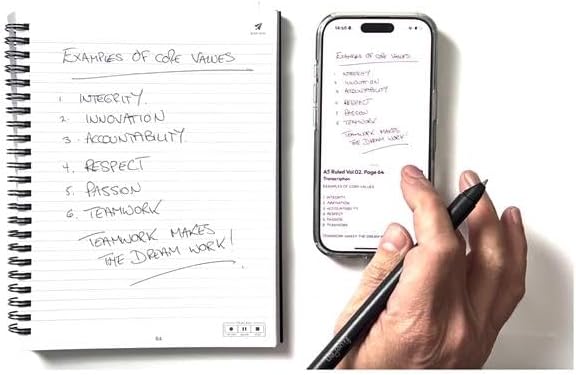 EXAMPLES OF CORE VALUES
1. INTEGRITY.
2. INNOVATION
3. ACCOUNTABILITY.
4. RESPECT
5. PASSON
6. TEAMWORK
TEAMWORK MAKES
THE DREAM WORK!
64
EXAMPLES OF CORE VALUES
1. INTEGRITY
2. INNOVATION
3. ACCOUNTABILITY
4. RESPECT
5. PASSON
6. TEAMWORK
TEAMWORK MAKES
THE DREAM WORK!
A5 Ruled Vol 02. Page 64
Transcription
EXAMPLES OF CORE VALUES
1. INTEGRITY
2. INNOVATION
3. ACCOUNTABILITY
4. RESPECT
5. PASSION
6. TEAMWORK
TEAMWORK MAKES THE DREAM